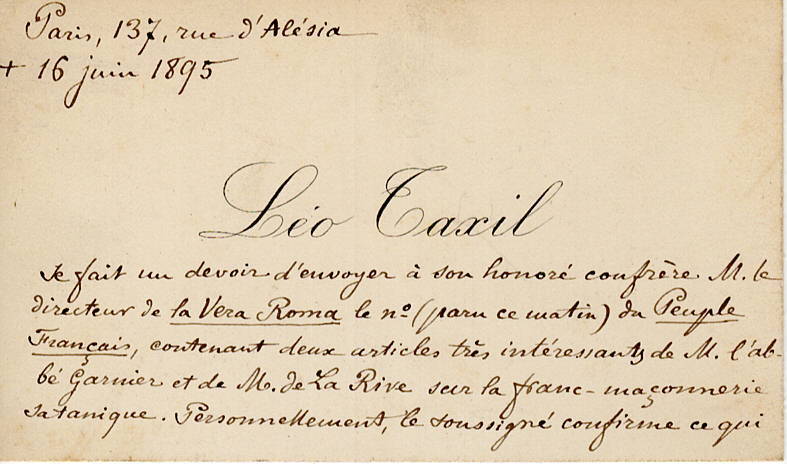 Paris, 137, rue d'Alésia
+ 16 juin 1895
Léo Taxil
se fait un devoir d'envoyer à son honoré confrère M. le
directeur de la Vera Roma le nº (paru ce matin) du Peuple
Français, contenant deux articles très intéressants de M. l'ab-
bé Garnier et de M. de La Rive sur la franc-maçonnerie
satanique. Personnellement, le soussigné confirme ce qui